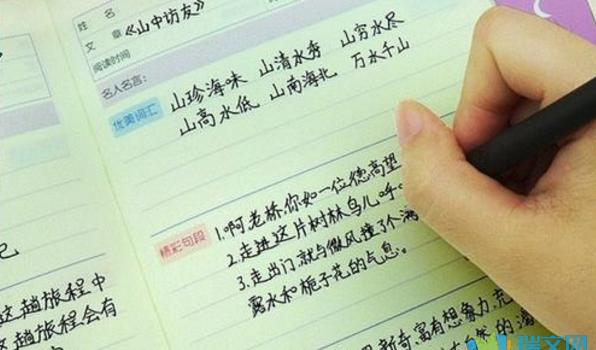 姓名
文章 《山中访友》
阅读时间
名人名言:
优美词汇 山珍海味 山清水秀 山穷水尽
山高水低 山南海北 万水千山
精彩句段 1.啊老桥,你如一位德高望
2.走进这片树林,鸟儿呼
3.走出门,就与微风撞了个满
露水和栀子花的气息。
这趟旅程中
这趟旅程会有
新奇,富有想象力,充
自然的
瑞文网